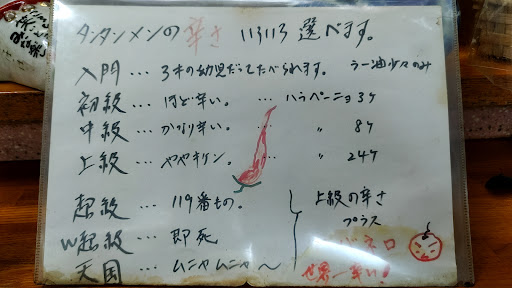 タンタンメンの辛さ いろいろ選べます。
入門…3才の幼児だってたべられます。 ラー油少々のみ
初級…ほど辛い。 …ハラペーニョ3ケ
中級…かなり辛い。 … 〃 8ケ
上級…ややキケン。 … 〃 24ケ
超級…119番もの。
W超級…即死
天国…ムニャムニャ〜
上級の辛さ
プラス
ハバネロ
世界一辛い!